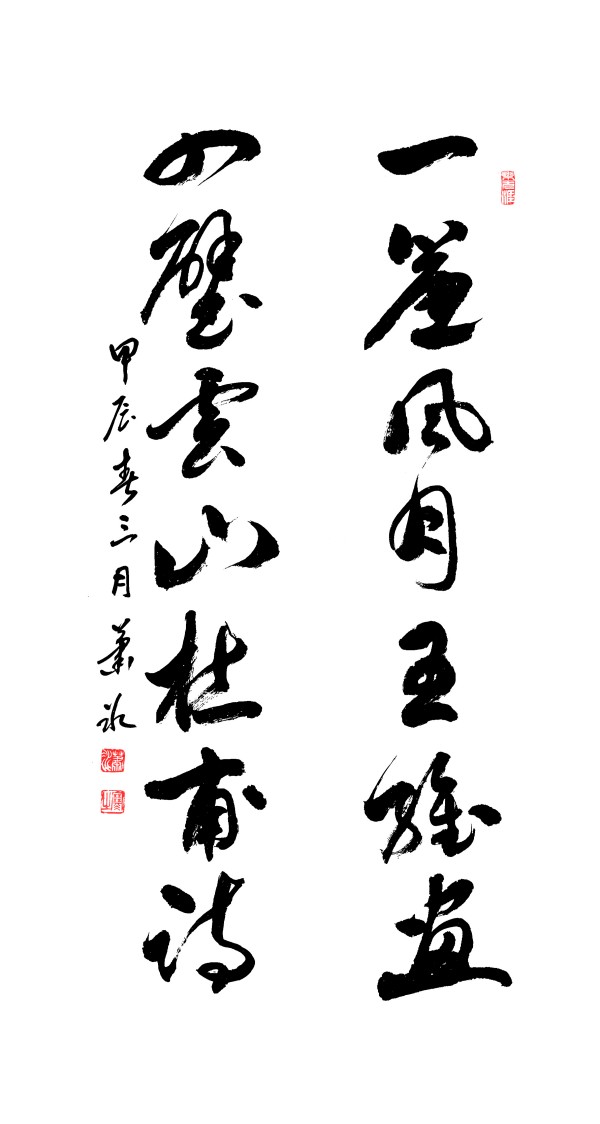 一簾風月王維畫
四壁雲山杜甫詩
甲辰春三月蕭冰